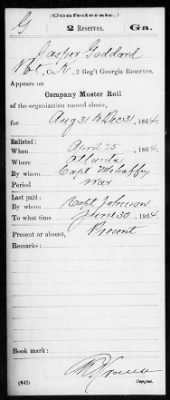 (Confederate.)
G 2 Reserves. Ga.
Jasper Goddard
Pvt, Co. K, 2 Reg't Georgia Reserves.
Appears on
Company Muster Roll
of the organization named above,
for Aug 31 to Dec 31, 1864.
Enlisted:
When April 25, 1864.
Where Atlanta
By whom Capt
Period War
Last paid:
By whom Capt Johnson
To what time June 30, 1864.
Present or absent, Present
Remarks:
Book mark:
(642) Copyist.